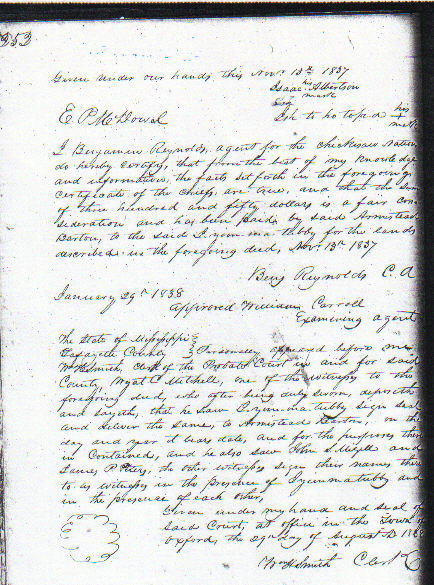 353
Given under our hands this Nov. 13th 1837
his
Isaac Albertson
mark
E P McDowal
his
Ish to ho to pa
mark
I Benjamin Reynolds, agent for the Chickasaw Nation
do hereby certify, that from the best of my knowledge
and information, the facts set forth in the foregoing
certificate of the chiefs, are true, and that the sum
of three hundred and fifty dollars is a fair con
sideration and has been paid by said Armistead
Barton, to the said I-yum-ma-tubby for the lands
described in the foregoing deed, Nov. 13th 1837
Benj Reynolds C. A
January 29th 1838
approved William Carroll
Examining agent
The State of Mississippi
Lafayette County } Personally appeared before me
Wm H Smith, clerk of the Probate Court in and for said
County, Wyat C Mitchell, one of the witnesses to the
foregoing deed, who after being duly sworn, deposeth
and sayeth, that he saw I-yum-ma-tubby sign seal
and deliver the same, to Armistead Barton, on the
day and year it bears date, and for the purposes there
in contained, and he also saw John S. and
James P the other witnesses sign their names there
to as witnesses in the presence of Iyummatubby and
in the presence of each other,
Given under my hand and seal of
said Court, at office in the Town of
Oxford, the 2nd day of August AD 1838
Wm H Smith Clerk